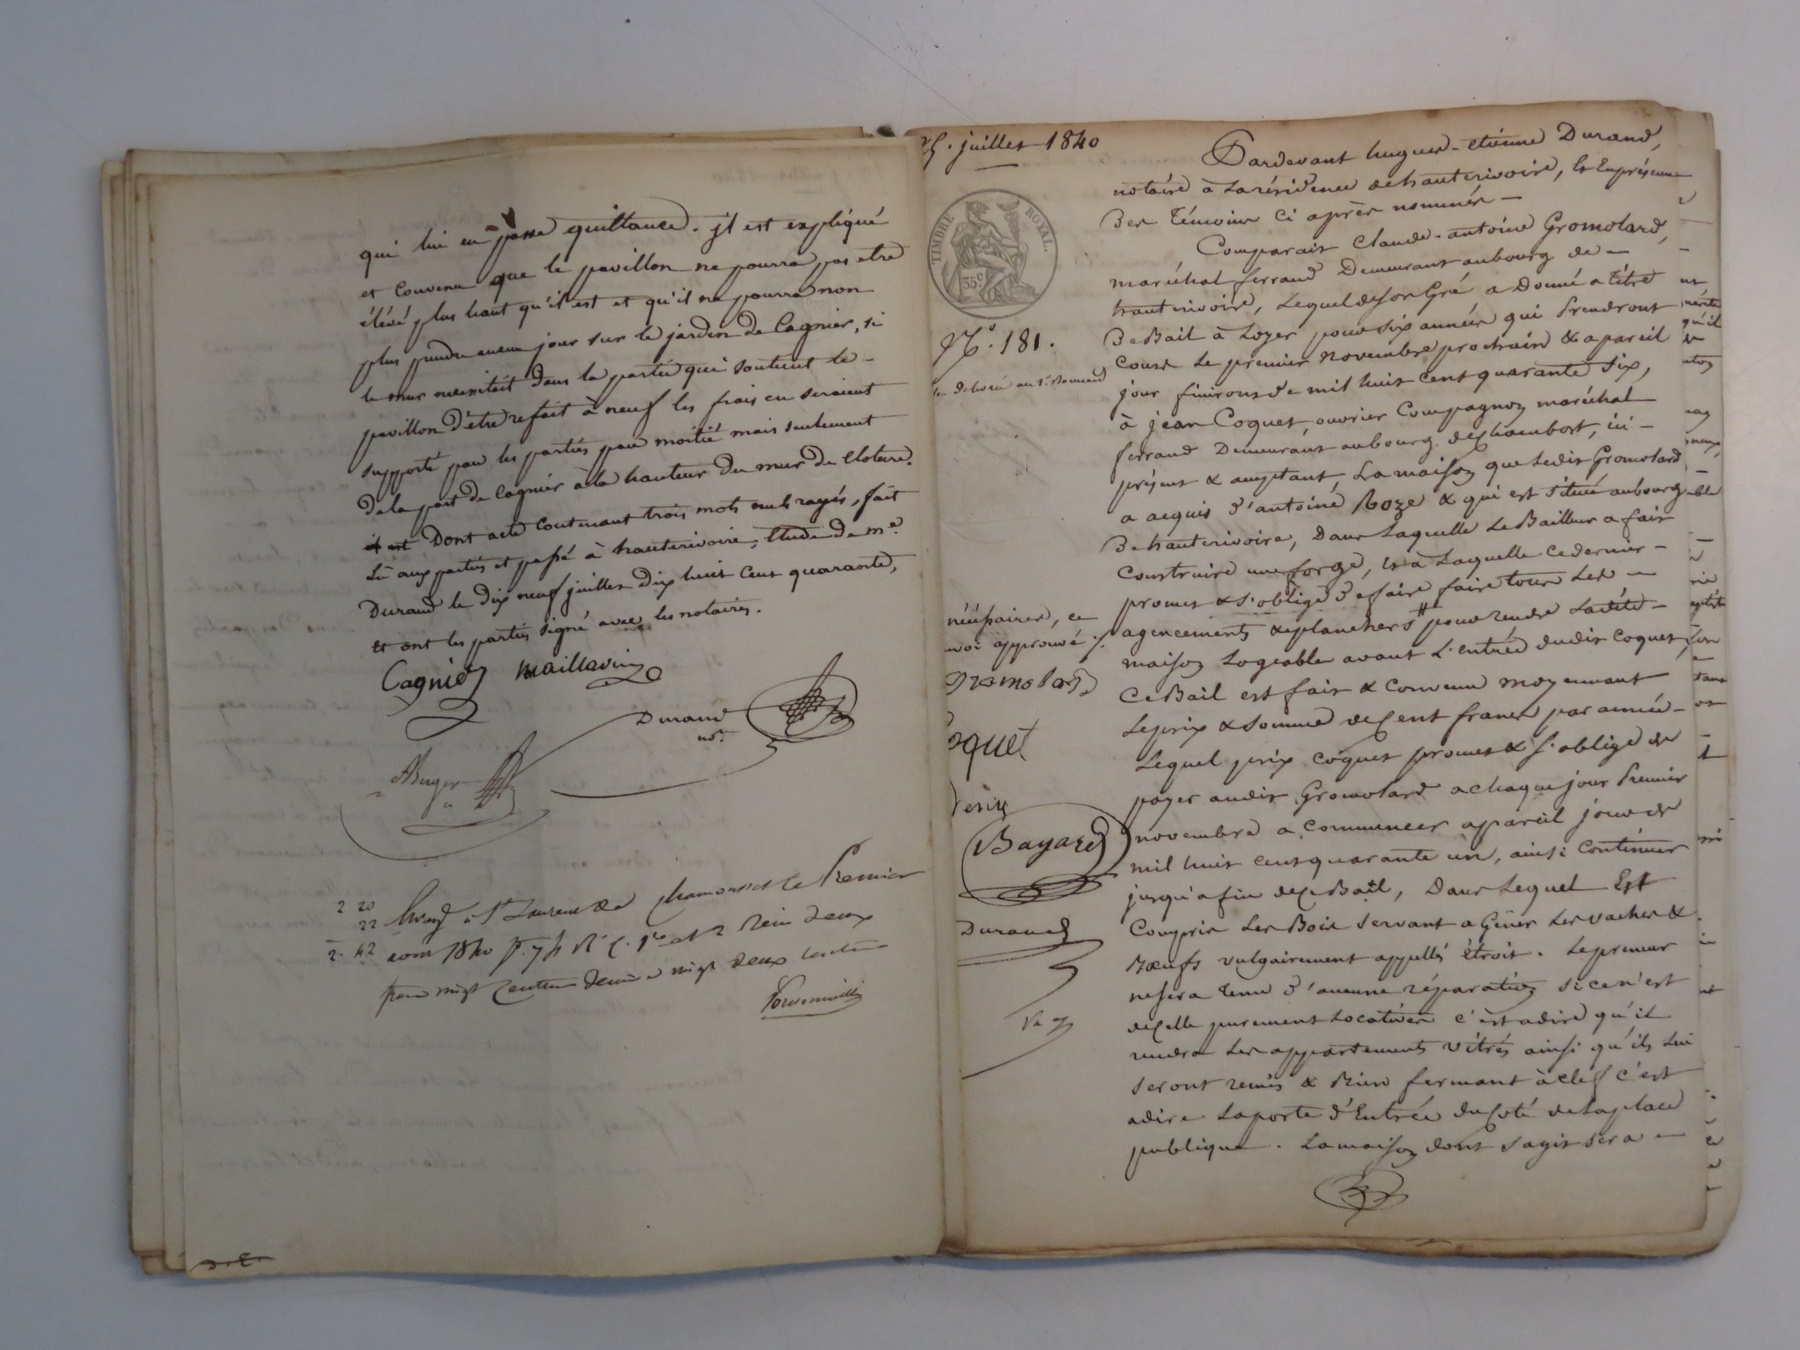 qui lui en passe quittance. jl est expliqué
et Convenu que le pavillon ne pourra pas etre
élévé plus haut qu'il est et qu'il ne pourra non
plus prendre aucun jour sur le jardin de Cagnier, si
le mur necessitait dans la partie qui soutient le -
pavillon d'être refait à neuf les frais en seraient
supporté par les parties par moitié mais seulement
de la part de Cagnier à la hauteur du mur de cloture.
il est Dont acte Contenant trois mots nuls rayés, fait
Lû aux parties et passé à hauterivoire, Etude de Me.
Durand le Dix neuf juillet Dix huit Cent quarante,
et ont les parties signé avec les notaires.
Cagnier Maillavin
Durand
nore
2 20
22
2. 42
Enreg à St Laurent de Chamousset le Premier
aout 1840 deux
franc vingt Centimes vingt deux centimes
25. juillet 1840
TIMBRE ROYAL.
35 c
No. 181.
Pardevant hugues-etienne Durand,
notaire à La résidence de hauterivoire, & Enprésence
Des Témoins Ci après nommés -
Comparait Claude-antoine Gromolard,
maréchal ferrand Demeurant aubourg de -
hauterivoire, Lequel de son Gré a Donné a titre
De Bail à Loyer pour six années qui Prendront
Cours Le premier novembre prochain & apareil
jour finiront de mil huit cent quarante six,
à jean Coquet, ouvrier Compagnon maréchal
ferrand Demeurant aubourg de Chambost, ici -
présent & acceptant, La maison que Ledit Gromolard
a acquis d'antoine Roze & qui est située aubourg
De hauterivoire, Dans Laquelle Le Bailleur a fait
Construire une forge, & à Laquelle ce dernier -
promet & s'oblige De faire faire tous Les -
agencements & planchers # pour rendre Ladite -
maison Logeable avant L'entrée dudit Coquet,
Ce Bail est fait & Convenu moyennant
Le prix & somme de Cent francs par année -
Lequel prix Coquet promet & s'oblige de
payer audit Gromolard a chaque jour Premier
novembre a Commencer apareil jour de
mil huit cent quarante un, ainsi Continuer
jusqu'a fin de Ce Bail, Dans Lequel Est
Compris Les Bois servant a Gêner Les vaches &
Bœufs vulgairement appellés étroit. Le preneur
ne sera tenu d'aucune réparation si ce n'est
de Celle purement Locatives c'est adire qu'il
rendra Les appartements vitrés ainsi qu'ils Lui
seront remis & Bien fermant à clef c'est
adire La porte d'Entrée du Coté de La place
publique. La maison dont s'agit sera -
néçessaires, ce
approuvé ./.
Gromolard
Coquet
Bayard
Durand